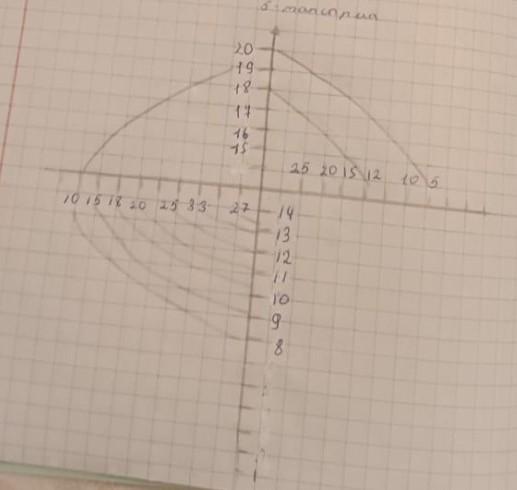 20
19
18
17
16
15
25 20 15 12 10 5
10 15 18 20 25 33 27
14
13
12
11
10
9
8